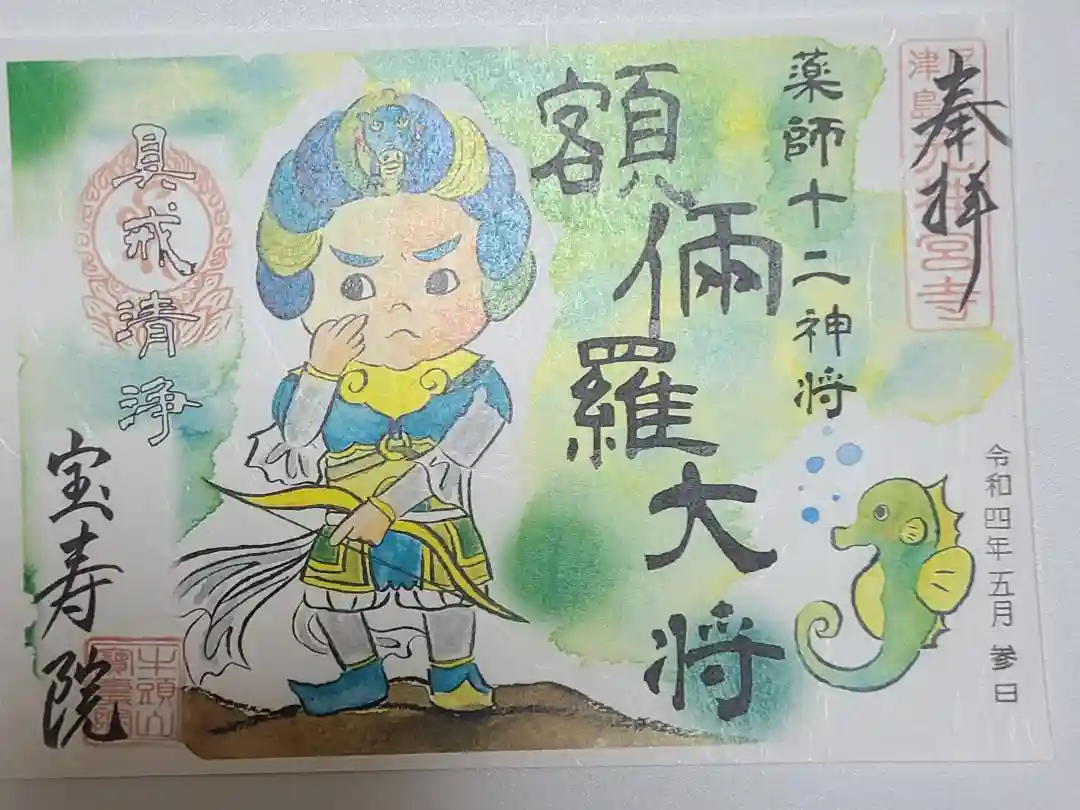 奉拝
薬師十二神将
額儞羅大将
令和四年五月参日
具戒清浄
宝寿院
牛頭山